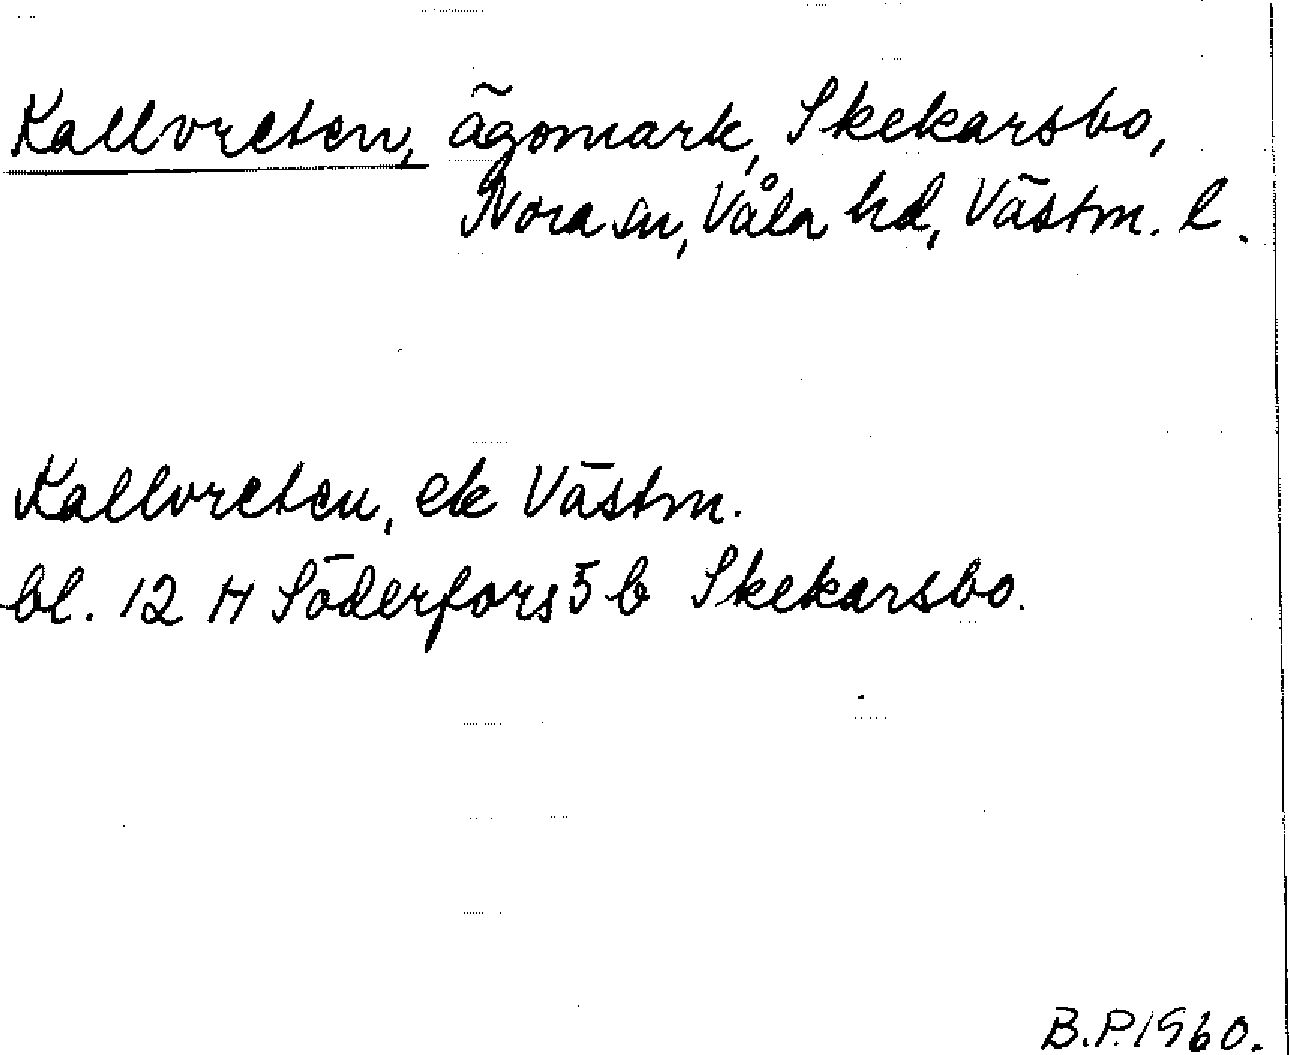 Kallvreten, ägomark, Skekarsbo,
Nora sn, Våla hd, Västm. l.
Kallvreten, ek Västm.
bl. 12 H Söderfors 5 b Skekarsbo.
B.P. 1960.